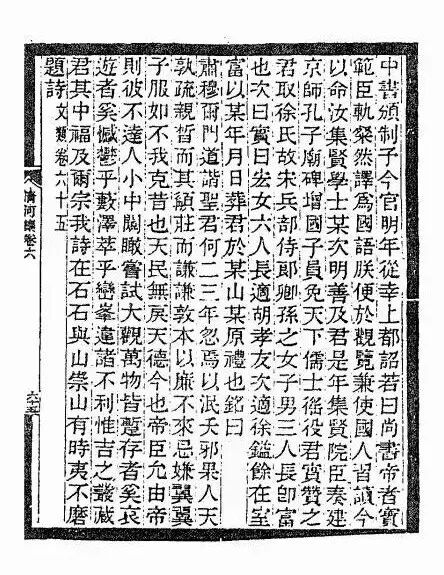 中書頒制子今官明年從幸上都詔若曰尚書帝者實
範臣軌粲然譯爲國語朕便於觀覽兼使國人習讀今
以命汝集賢學士某次明善及君是年集賢院臣奏建
京師孔子廟碑增國子員免天下儒士徭役君實贊之
君取徐氏故宋兵部侍郎卿孫之女子男三人長卽富
也次曰實曰宏女六人長適胡孝友次適徐鎰餘在室
富以某年月日葬君於某山某原禮也銘曰
肅穆爾門道諧聖君何二三年忽焉以泯夭邪果人天
孰疏親晢而其頎莊而謙謙敦本以廉不來忌嫌翼翼
子服如不我克昔也天民無戾天德今也帝臣允由帝
則彼不達人小中闚瞰嘗試大觀萬物皆蹔存者奚哀
遊者奚慽鬱乎數澤萃乎巒峯違諸不利惟吉之叢藏
君其中福及爾宗我詩在石石與山崇山有時夷不磨
題詩 文類卷六十五
清河集卷六